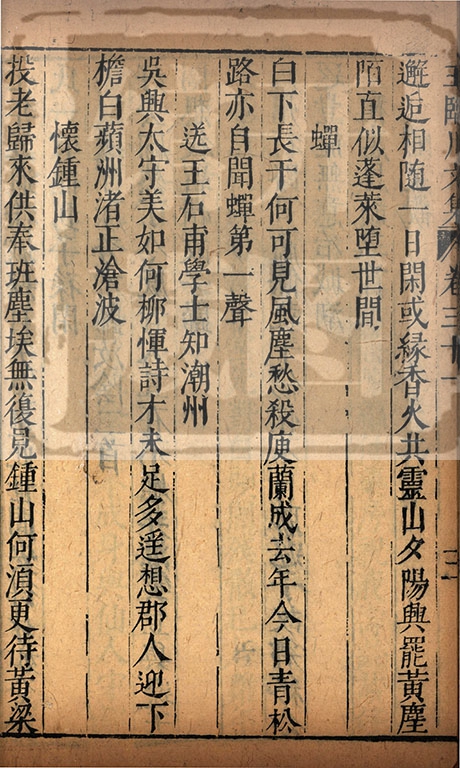 王臨川文集 卷三十一
邂逅相隨一日閑或緣香火共靈山夕陽興罷黃塵
陌直似蓬萊墮世間
蟬
白下長干何可見風塵愁殺庾蘭成去年今日青松
路亦自聞蟬第一聲
送王石甫學士知潮州
吳興太守美如何柳惲詩才未足多遥想郡人迎下
檐白蘋洲渚正滄波
懷鍾山
投老歸來供奉班塵埃無復見鍾山何須更待黃粱